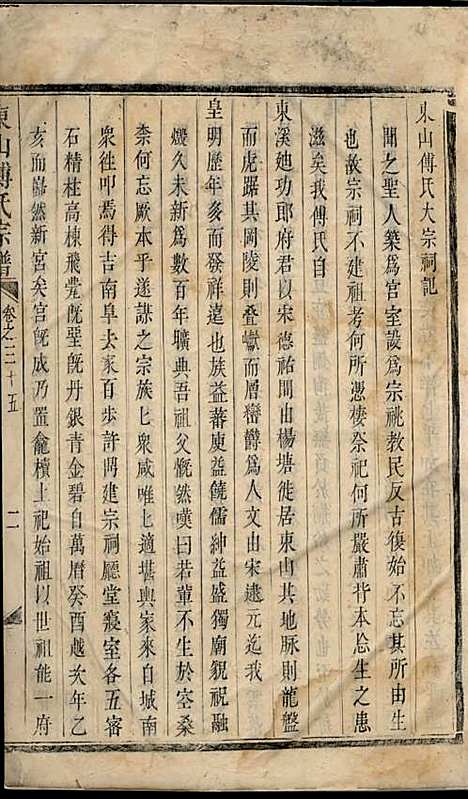 東山傅氏大宗祠記
聞之聖人築為宮室設為宗祧教民反古復始不忘其所由生
也故宗祠不建祖考何所憑棲祭祀何所嚴肅拌本忩生之患
滋矣我傅氏自
東溪迪功郎府君以宋德祐間由楊塘徙居東山其地脉則龍盤
而虎踞其岡陵則叠巘而層巒欝為人文由宋逮元迄我
皇明歷年多而發祥遠也族益蕃庾益饒儒紳益盛獨廟貌祝融
燬久未新為數百年曠典吾祖父慨然嘆曰若輩不生於空桑
柰何忘厥本乎遂謀之宗族七衆咸唯七適堪輿家来自城南
衆徃叩焉得吉南阜去家百步許閗建宗祠廳堂寢室各五審
石精柱高棟飛甍旣堊旣丹銀青金碧自萬曆癸酉越次年乙
亥而巋然新宮矣宮旣成乃置龕櫝上祀始祖以世祖能一府
東山傅氏宗譜
卷之三十五
二